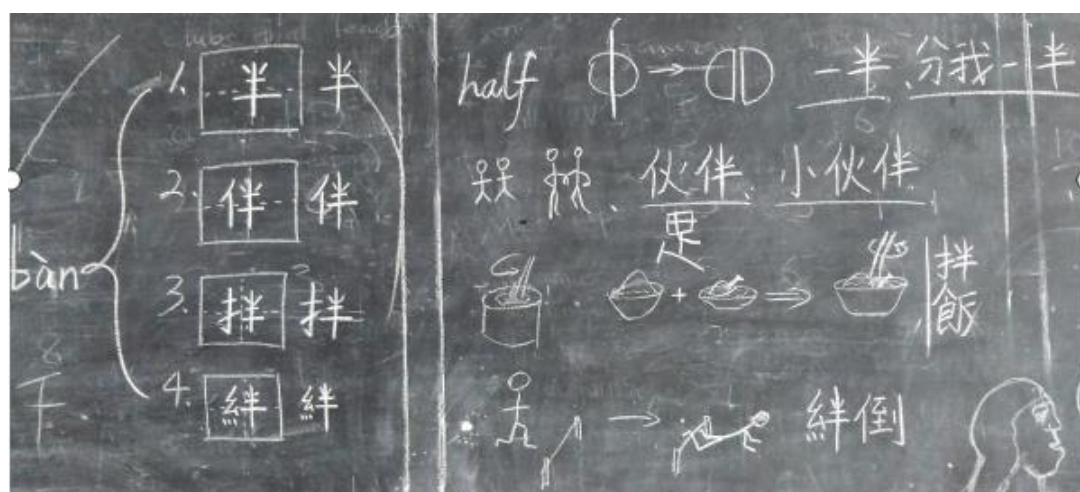 bàn
1. 半 半
2. 伴 伴
3. 拌 拌
4. 絆 絆
half 一半、分我一半
伙伴、小伙伴
是
+
拌飯
絆倒
8
千